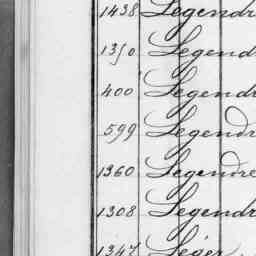 1438 Legendr
1350 Legend
400 Legendr
599 Legendr
1360 Legendre
1308 Legendr
1347 Léger